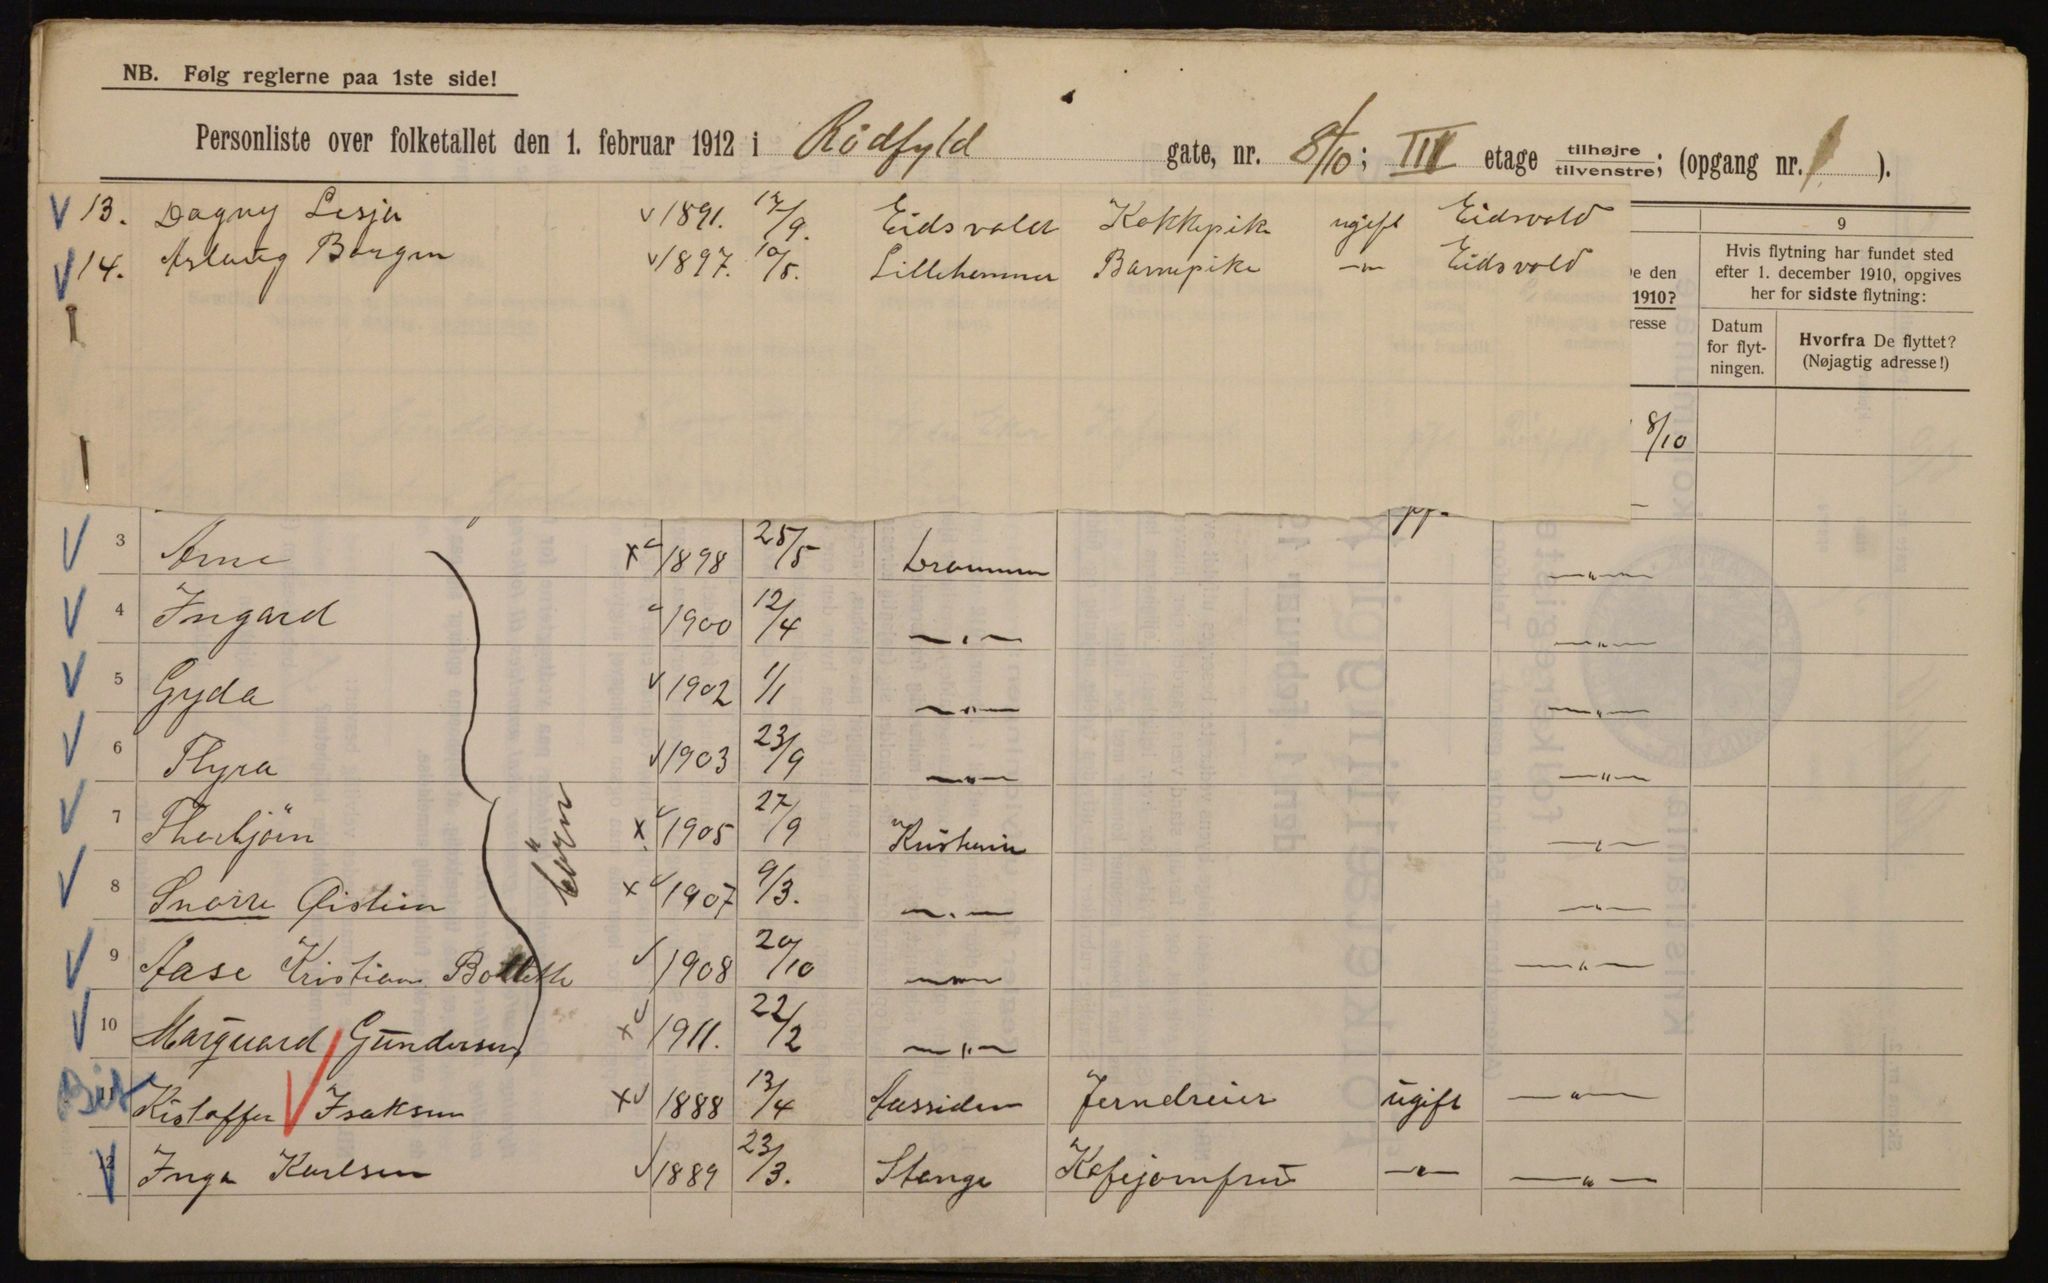 NB. Følg reglerne paa 1ste side!
Personliste over folketallet den 1. februar 1912 i Rödfyld gate, nr. 8/10; III etage tilhøjre/tilvenstre; (opgang nr. 1).
13. Dagny Lesja 1891. 17/9. Eidsvold Kokkepike ugift Eidsvold
14. Aslaug Borgen 1897. 10/5. Lillehammer Barnepike —"— Eidsvold
9
Hvis flytning har fundet sted
efter 1. december 1910, opgives
her for sidste flytning:
De den
1910?
resse
Datum
for flyt-
ningen.
Hvorfra De flyttet?
(Nøjagtig adresse!)
8/10
3 Arne x 1898 25/5 Drammen —"—
4 Ingard 1900 12/4 —"— —"—
5 Gyda 1902 1/1 —"— —"—
6 Thyra 1903 23/9 —"— —"—
7 Thorbjörn x 1905 27/9 Kristiania —"—
börn
8 Snorre Øistein x 1907 9/3. —"— —"—
9 Aase Kristiane 1908 20/10 —"— —"—
10 Marquard Gundersen x 1911. 22/2 —"—
11 Kristoffer Isaksen x 1888 13/4 Aassiden Jerndreier ugift —"—
12 Inga Karlsen 1889 23/3. Stange Kafejomfru —"— —"—